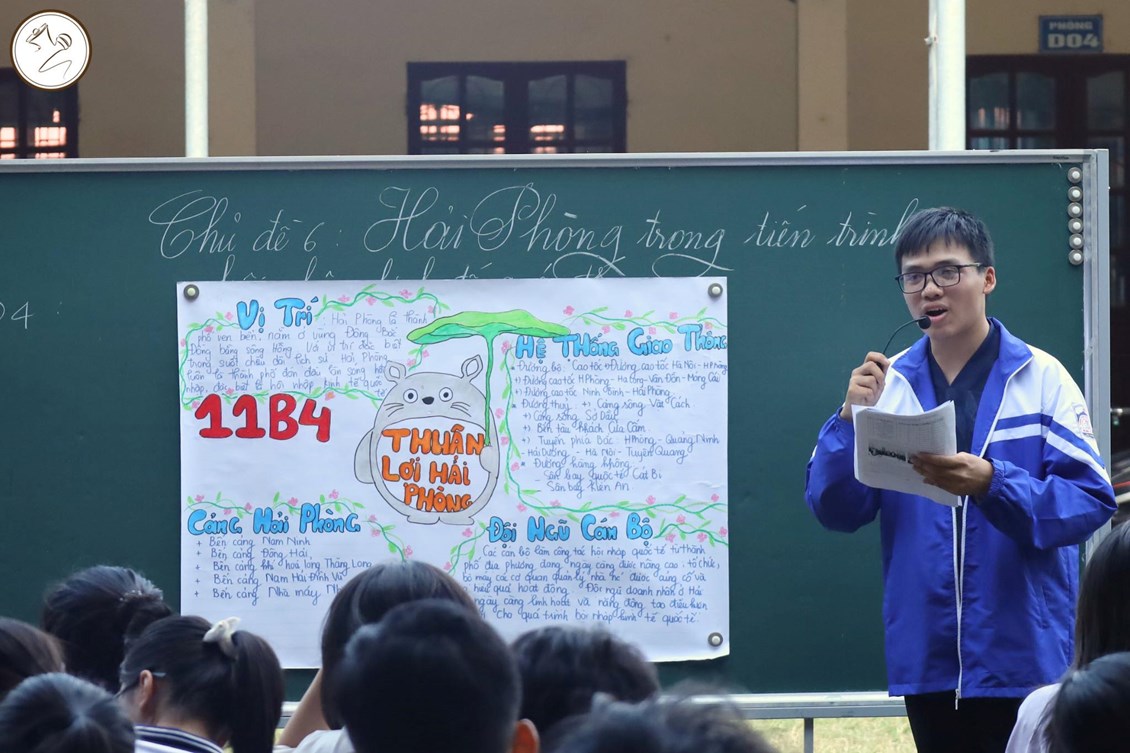 PHÒNG
D04
Chủ đề 6: Hải Phòng trong tiến trình
Vị Trí
Hải Phòng là thành
phố ven biển, nằm ở vùng Đông Bắc
Đồng bằng sông Hồng. Với vị trí đặc biệt
trong suốt chiều dài lịch sử Hải Phòng
luôn là thành phố đón đầu làn sóng hội
nhập, đặc biệt là hội nhập kinh tế quốc
11B4
THUẬN
LỢI HẢI
PHÒNG
Hệ Thống Giao Thông
Đường bộ: Cao tốc +) Đường cao tốc Hà Nội - HPhòng
+) Đường cao tốc HPhòng - Hạ Long - Vân Đồn - Móng Cái
+) Đường cao tốc Ninh Bình - Hải Phòng
Đường thuỷ: +) Cảng sông Vật Cách
+) Cảng sông Sở Dầu
+) Bến tàu khách Cửa Cấm
+) Tuyến phía Bắc: HPhòng - Quảng Ninh
Hải Dương - Hà Nội - Tuyên Quang
Đường hàng không:
- Sân bay quốc tế Cát Bi
- Sân bay Kiến An
Cảng Hải Phòng
+ Bến cảng Nam Ninh
+ Bến cảng Đông Hải
+ Bến cảng khí hoá lỏng Thăng Long
+ Bến cảng Nam Hải Đình Vũ
+ Bến cảng Nhà máy
Đội Ngũ Cán Bộ
Các cán bộ làm công tác hội nhập quốc tế từ thành
phố địa phương đang ngày càng được nâng cao. Tổ chức,
bộ máy các cơ quan quản lý nhà nc được củng cố và
hiệu quả hoạt động. Đội ngũ doanh nhân ở Hải
ngày càng linh hoạt và năng động, tạo điều kiện
cho quá trình hội nhập kinh tế quốc tế